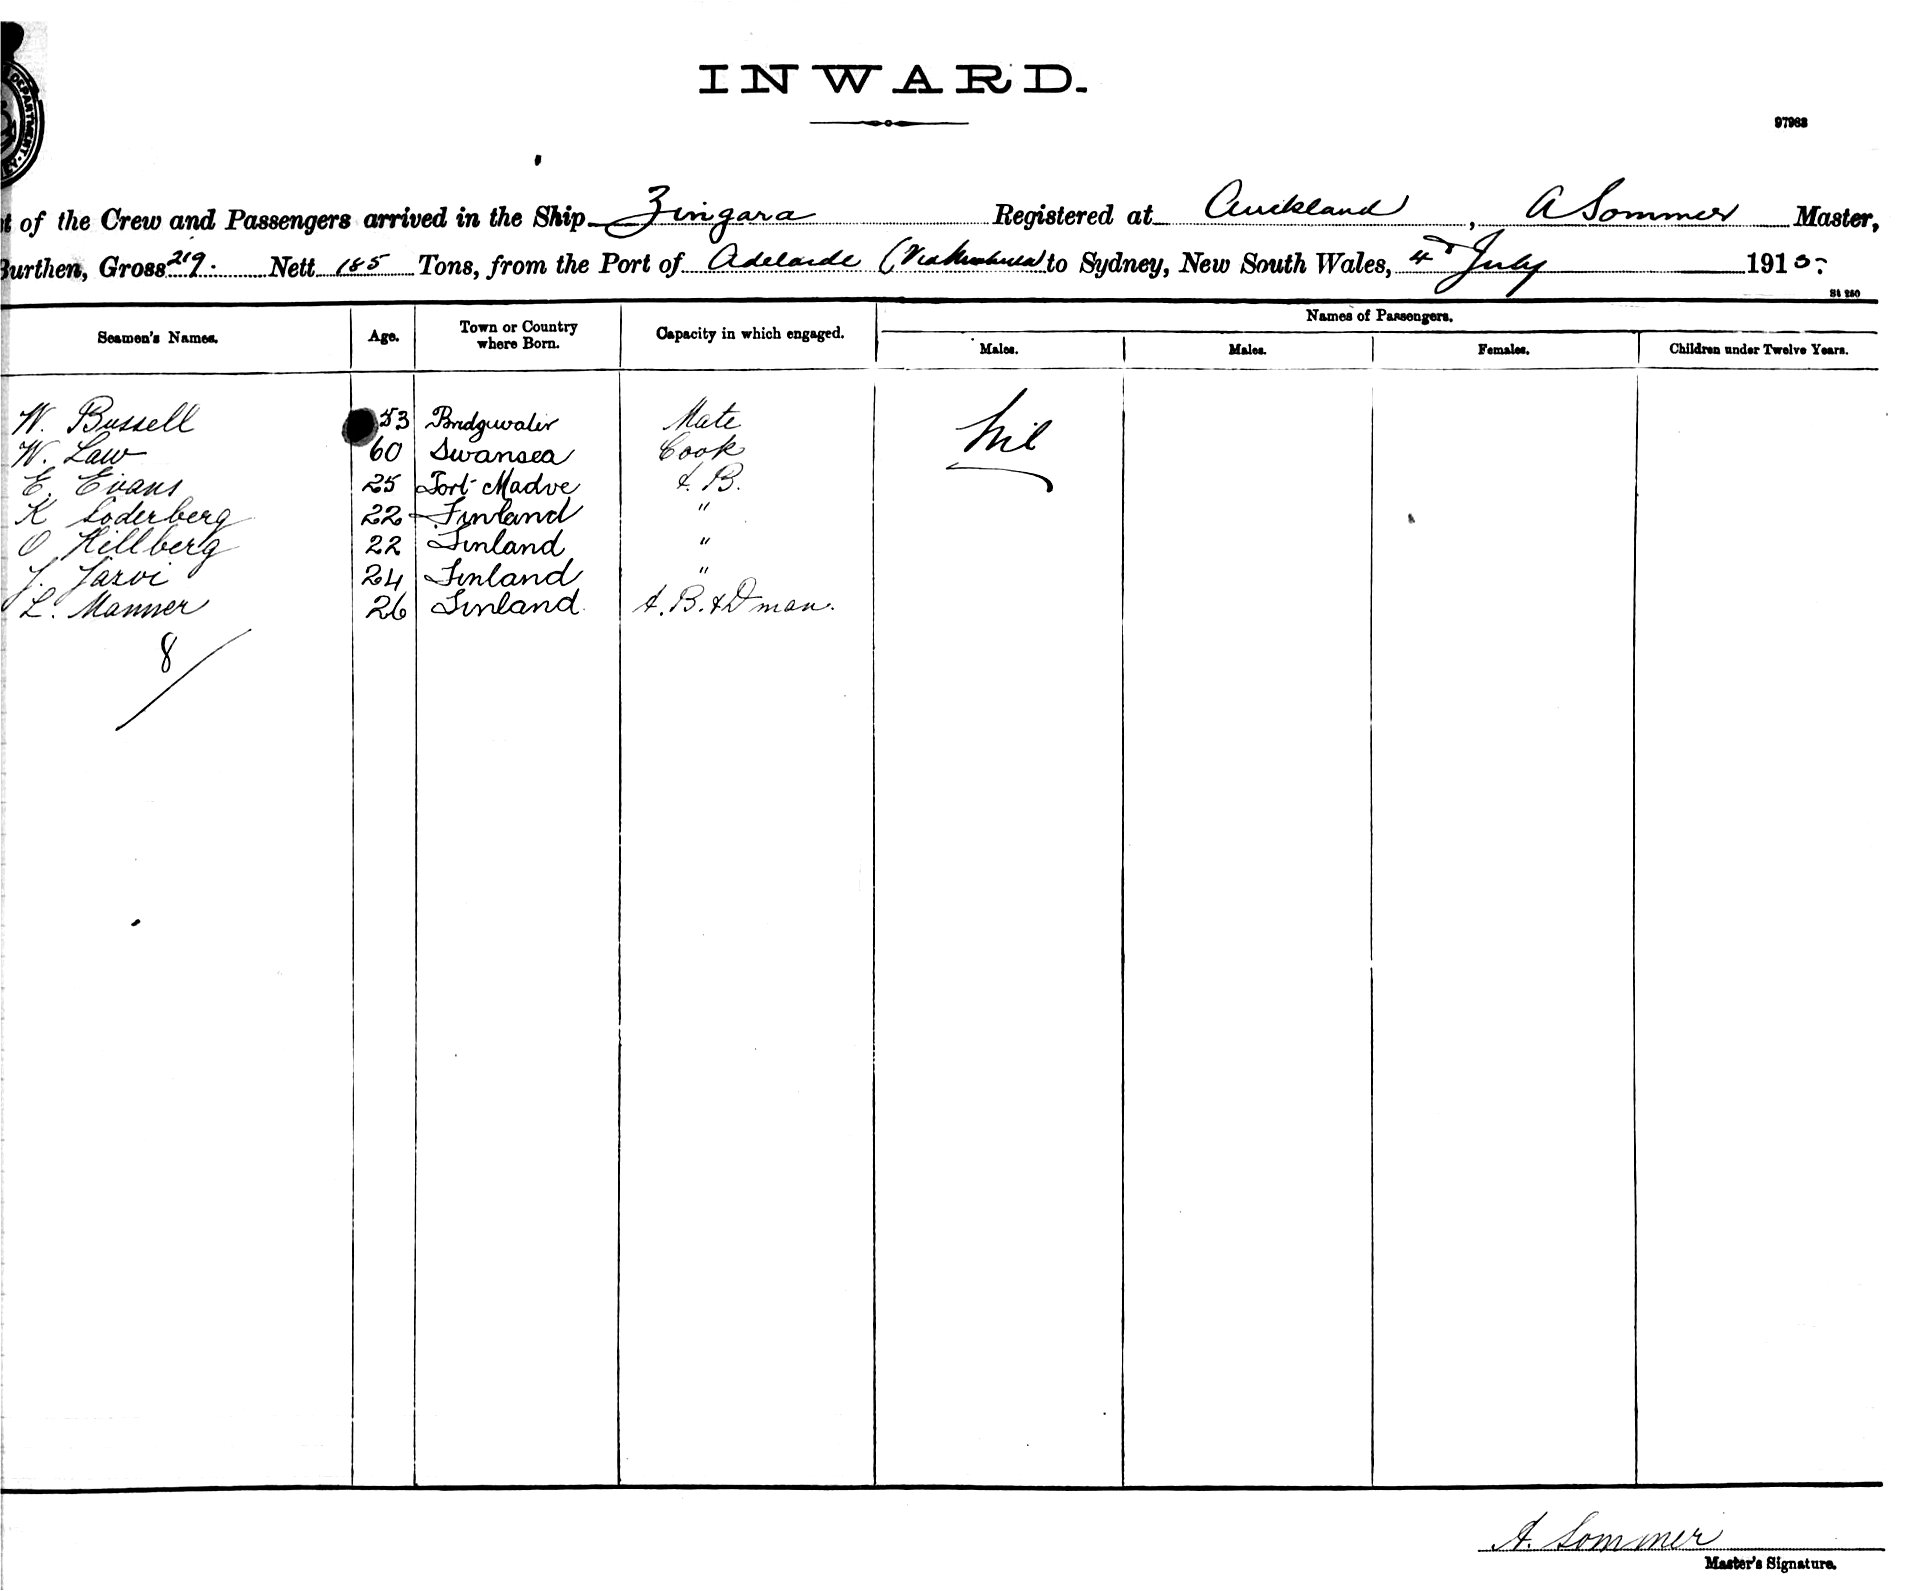 INWARD.
97963
of the Crew and Passengers arrived in the Ship Zingara Registered at Auckland, A Sommer Master,
Burthen, Gross 219. Nett 185 Tons, from the Port of Adelaide (Via to Sydney, New South Wales, 4th July 1915.
St 280
Seamen's Names. Age. Town or Country where Born. Capacity in which engaged. Names of Passengers.
Males. Males. Females. Children under Twelve Years.
W. Bussell 53 Bridgwater Mate Nil
W. Law 60 Swansea Cook
E. Evans 25 Port Madve A. B.
K Soderberg 22 Finland "
O Hillberg 22 Finland "
J. Jarvi 24 Finland "
L. Manner 26 Finland A. B. & Dman.
8
A. Sommer
Master's Signature.
DEPARTMENT